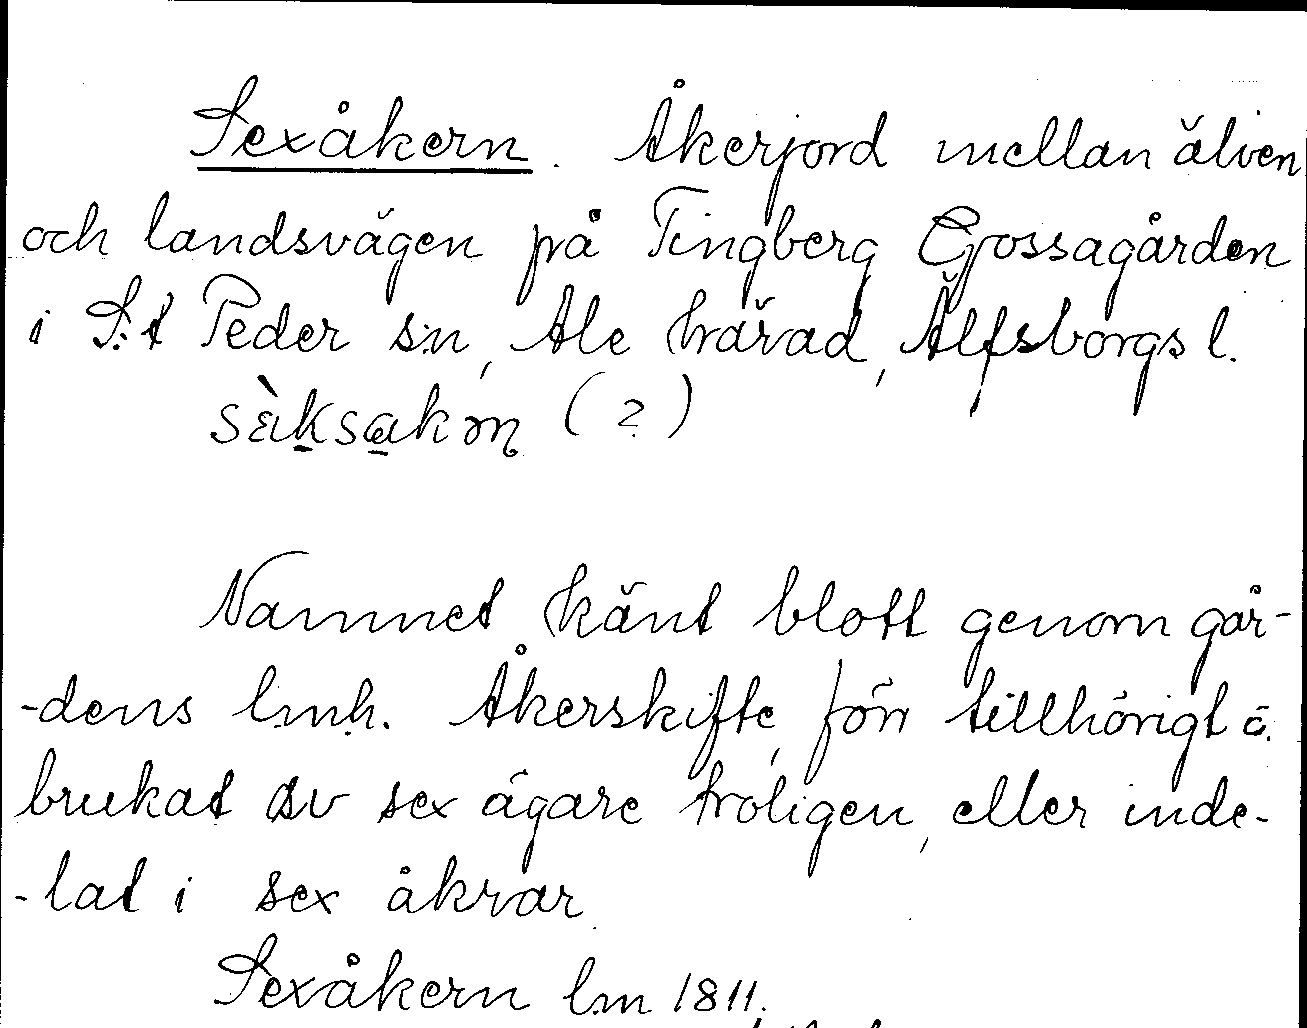 Sexåkern. Åkerjord mellan älven
och landsvägen på Tingberg Gossagården
i S:t Peder sn, Ale härad, Älfsborgs l.
(?)
Namnet känt blott genom går-
-dens lmh. Åkerskifte, förr tillhörigt o.
brukat av sex ägare troligen, eller inde-
-lat i sex åkrar.
Sexåkern lm 1811.